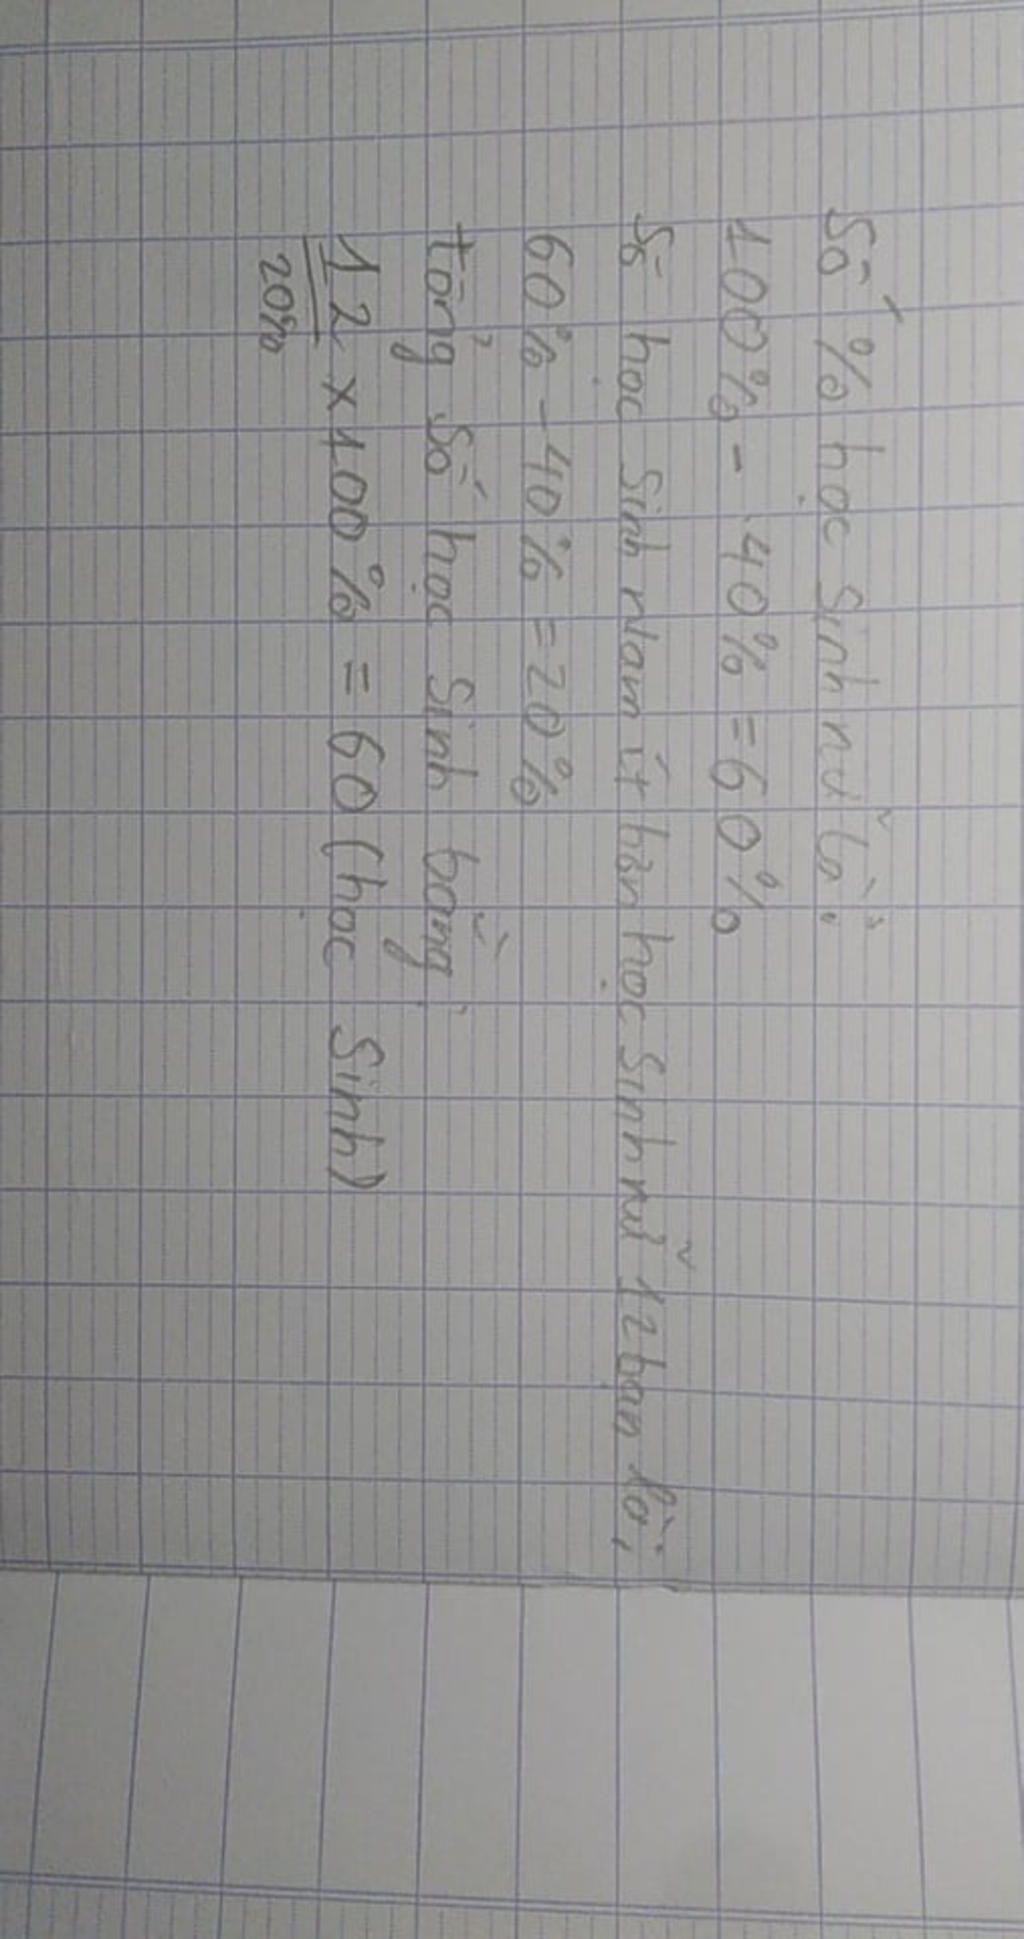 Số % học sinh nữ là:
100% - 40% = 60%
Số học sinh nam ít hơn học sinh nữ 12 bạn là:
60% - 40% = 20%
tổng số học sinh bằng:
12 x 100% = 60 (học sinh)
20%